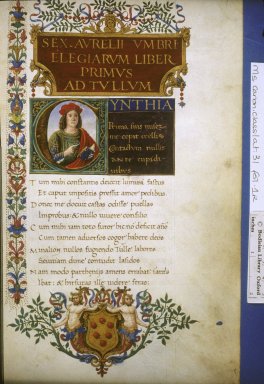 SEX·AVRELII VMBRI
ELEGIARVM LIBER
PRIMVS
AD TVLLVM
CYNTHIA
Prima suis misez
me cepit ocellis
Contactum nullis
ante cupidi
nibus
Tum mihi constantis deiecit lumina fastus
Et caput impositis pressit amor pedibus
Donec me docuit castas odisse puellas
Improbus & nullo uiuere consilio
Et mihi iam toto furor hic no deficit año
Cum tamen aduersos cogor habere deos
Milanion nullos fugiendo Tulle labores
Seuitiam durae contudit Iasidos
Nam modo parthenijs amens errabat in antris
Ibat & hirsutas ille uidere feras:
Ms canon. class. lat. 31 fol 1R
© Bodleian Library Oxford
inches